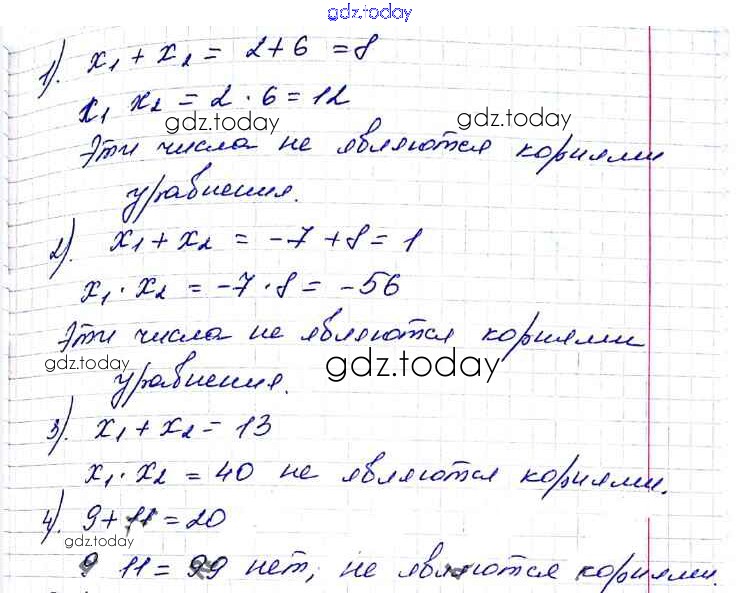 gdz.today
1). x₁ + x₂ = 2+6 = 8
x₁ x₂ = 2 · 6 = 12
gdz.today gdz.today
Эти числа не являются корнями
уравнения.
2). x₁ + x₂ = -7 + 8 = 1
x₁ · x₂ = -7 · 8 = -56
Эти числа не являются корнями
gdz.today gdz.today
уравнения.
3). x₁ + x₂ = 13
x₁ · x₂ = 40 не являются корнями.
4). 9 + 11 = 20
gdz.today
9 11 = 99 нет, не являются корнями.